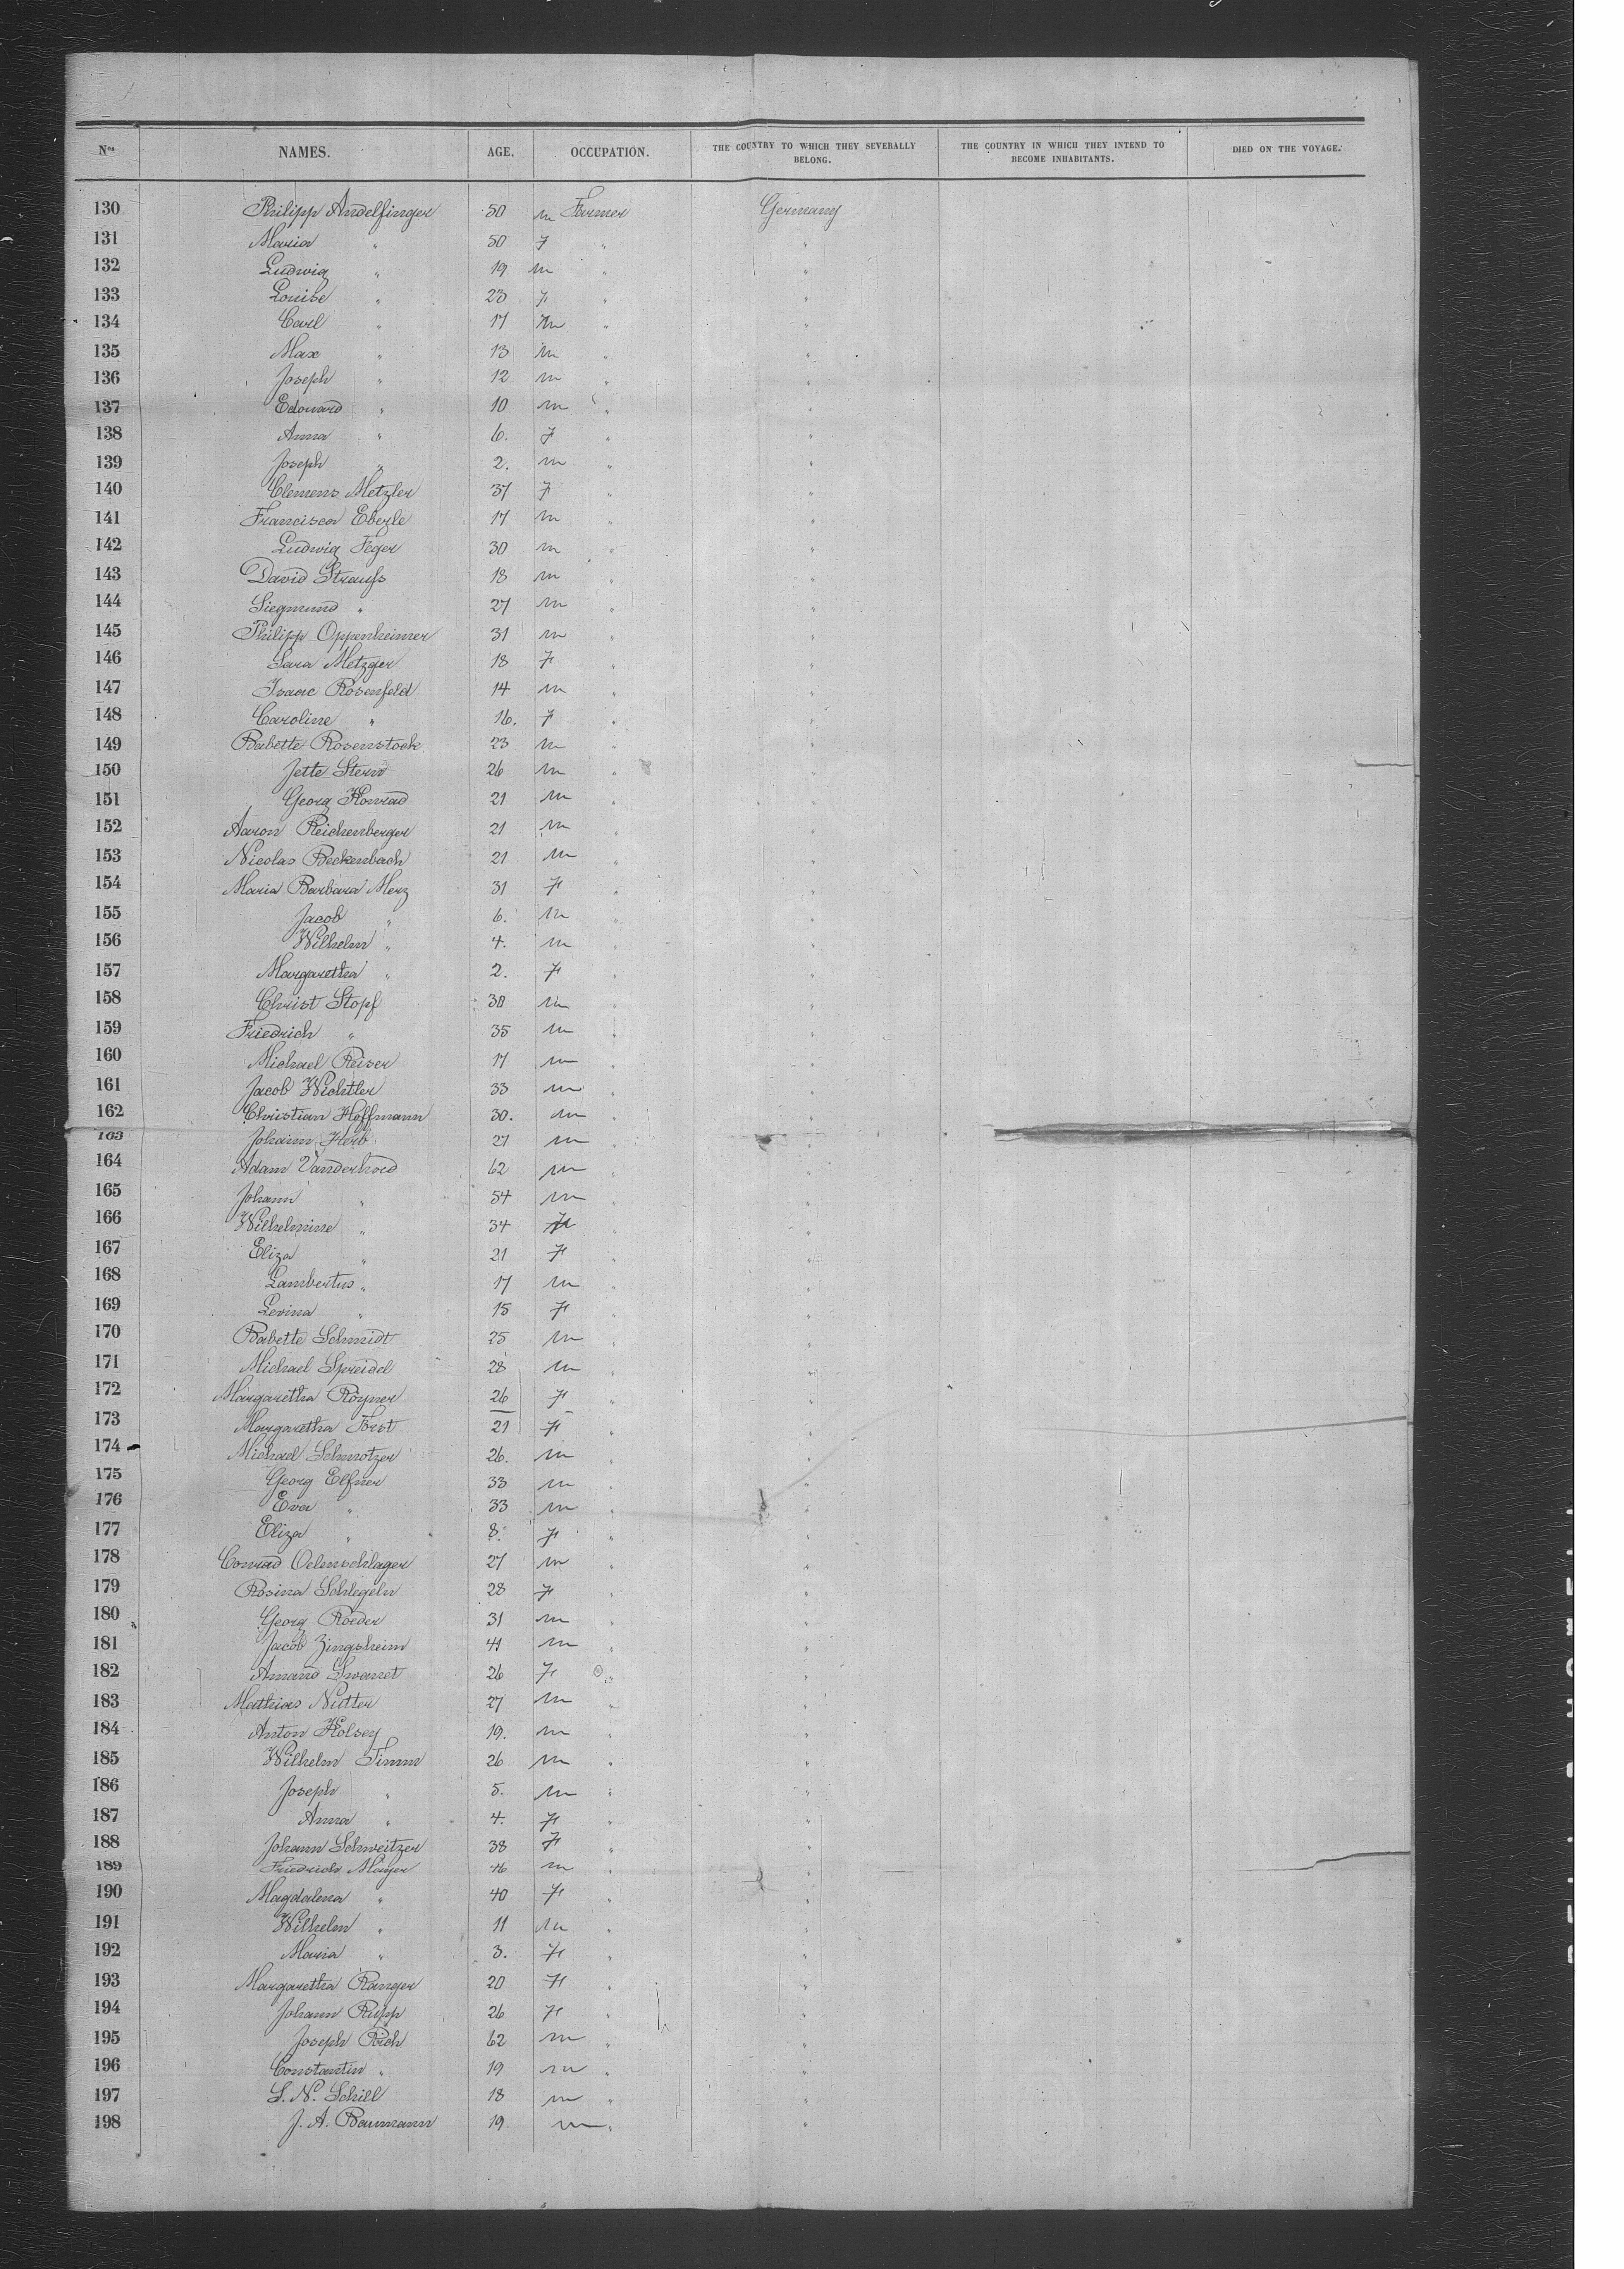 Nos NAMES. AGE. OCCUPATION. THE COUNTRY TO WHICH THEY SEVERALLY BELONG. THE COUNTRY IN WHICH THEY INTEND TO BECOME INHABITANTS. DIED ON THE VOYAGE.
130 Philipp Andelfinger 50 m Farmer Germany
131 Maria " 50 f " "
132 Ludwig " 19 m " "
133 Louise " 23 f " "
134 Carl " 17 m " "
135 Max " 13 m " "
136 Joseph " 12 m " "
137 Edouard " 10 m " "
138 Anna " 6. f " "
139 Joseph " 2. m " "
140 Clemens Metzler 37 f " "
141 Francisca Eberle 17 m " "
142 Ludwig Feger 30 m " "
143 David Strauss 18 m " "
144 Siegmund " 27 m " "
145 Philipp Oppenheimer 31 m " "
146 Sara Metzger 18 f " "
147 Isaac Rosenfeld 14 m " "
148 Caroline " 16. f " "
149 Babette Rosenstock 23 m " "
150 Jette Stern 26 m " "
151 Georg Konrad 21 m " "
152 Aaron Reichenberger 21 m " "
153 Nicolas Beckenbach 21 m " "
154 Maria Barbara Merz 31 f " "
155 Jacob " 6. m " "
156 Wilhelm " 4. m " "
157 Margaretha " 2. f " "
158 Christ Stopf 30 m " "
159 Friedrich " 35 m " "
160 Michael Reiser 17 m " "
161 Jacob Wichtler 33 m " "
162 Christian Hoffmann 30. m " "
163 Johann Herb 27 m " "
164 Adam Vanderhoed 62 m " "
165 Johann " 54 m " "
166 Wilhelmine " 34 f " "
167 Eliza " 21 f " "
168 Lambertus " 17 m " "
169 Levina " 15 f " "
170 Babette Schmidt 25 m " "
171 Michael Spreidel 28 m " "
172 Margaretha 26 f " "
173 Margaretha Forst 21 f " "
174 Michael Schmotzer 26. m " "
175 Georg Elfner 33 m " "
176 Eva " 33 m " "
177 Eliza " 8. f " "
178 Conrad Oelmschlager 27 m " "
179 Rosina Schlegeln 28 f " "
180 Georg Roeder 31 m " "
181 Jacob Zingsheim 41 m " "
182 Amand 26 f " "
183 Mathias Nutter 27 m " "
184 Anton Holsey 19. m " "
185 Wilhelm Timm 26 m " "
186 Joseph " 5. m " "
187 Anna " 4. f " "
188 Johann Schweitzer 38 f " "
189 Friedrich Mayer 46 m " "
190 Magdalena " 40 f " "
191 Wilhelm " 11 m " "
192 Maria " 3. f " "
193 Margaretha Ranger 20 f " "
194 Johann Rupp 26 f " "
195 Joseph Rich 62 m " "
196 Constantin " 19 m " "
197 S. N. Schill 18 m " "
198 J. A. Baumann 19 m " "